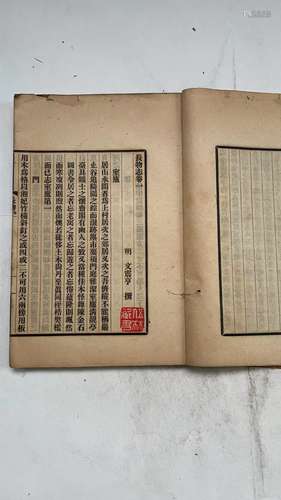 長物志卷一
明 文震亨 撰
室廬
居山水間者爲上村居次之郊居又次之吾儕縱不能棲巖
止谷追綺園之蹤而混跡廛市要須門庭雅潔室廬清靚亭
臺具曠士之懷齋閣有幽人之致又當種佳木怪籜陳金石
圖書令居之者忘老寓之者忘歸遊之者忘倦蘊隆則颯然
而寒凜冽則煦然而燠若徒侈土木尚丹堊眞同桎梏樊檻
而已志室廬第一
門
用木爲格以湘妃竹橫斜釘之或四或二不可用六兩傍用板